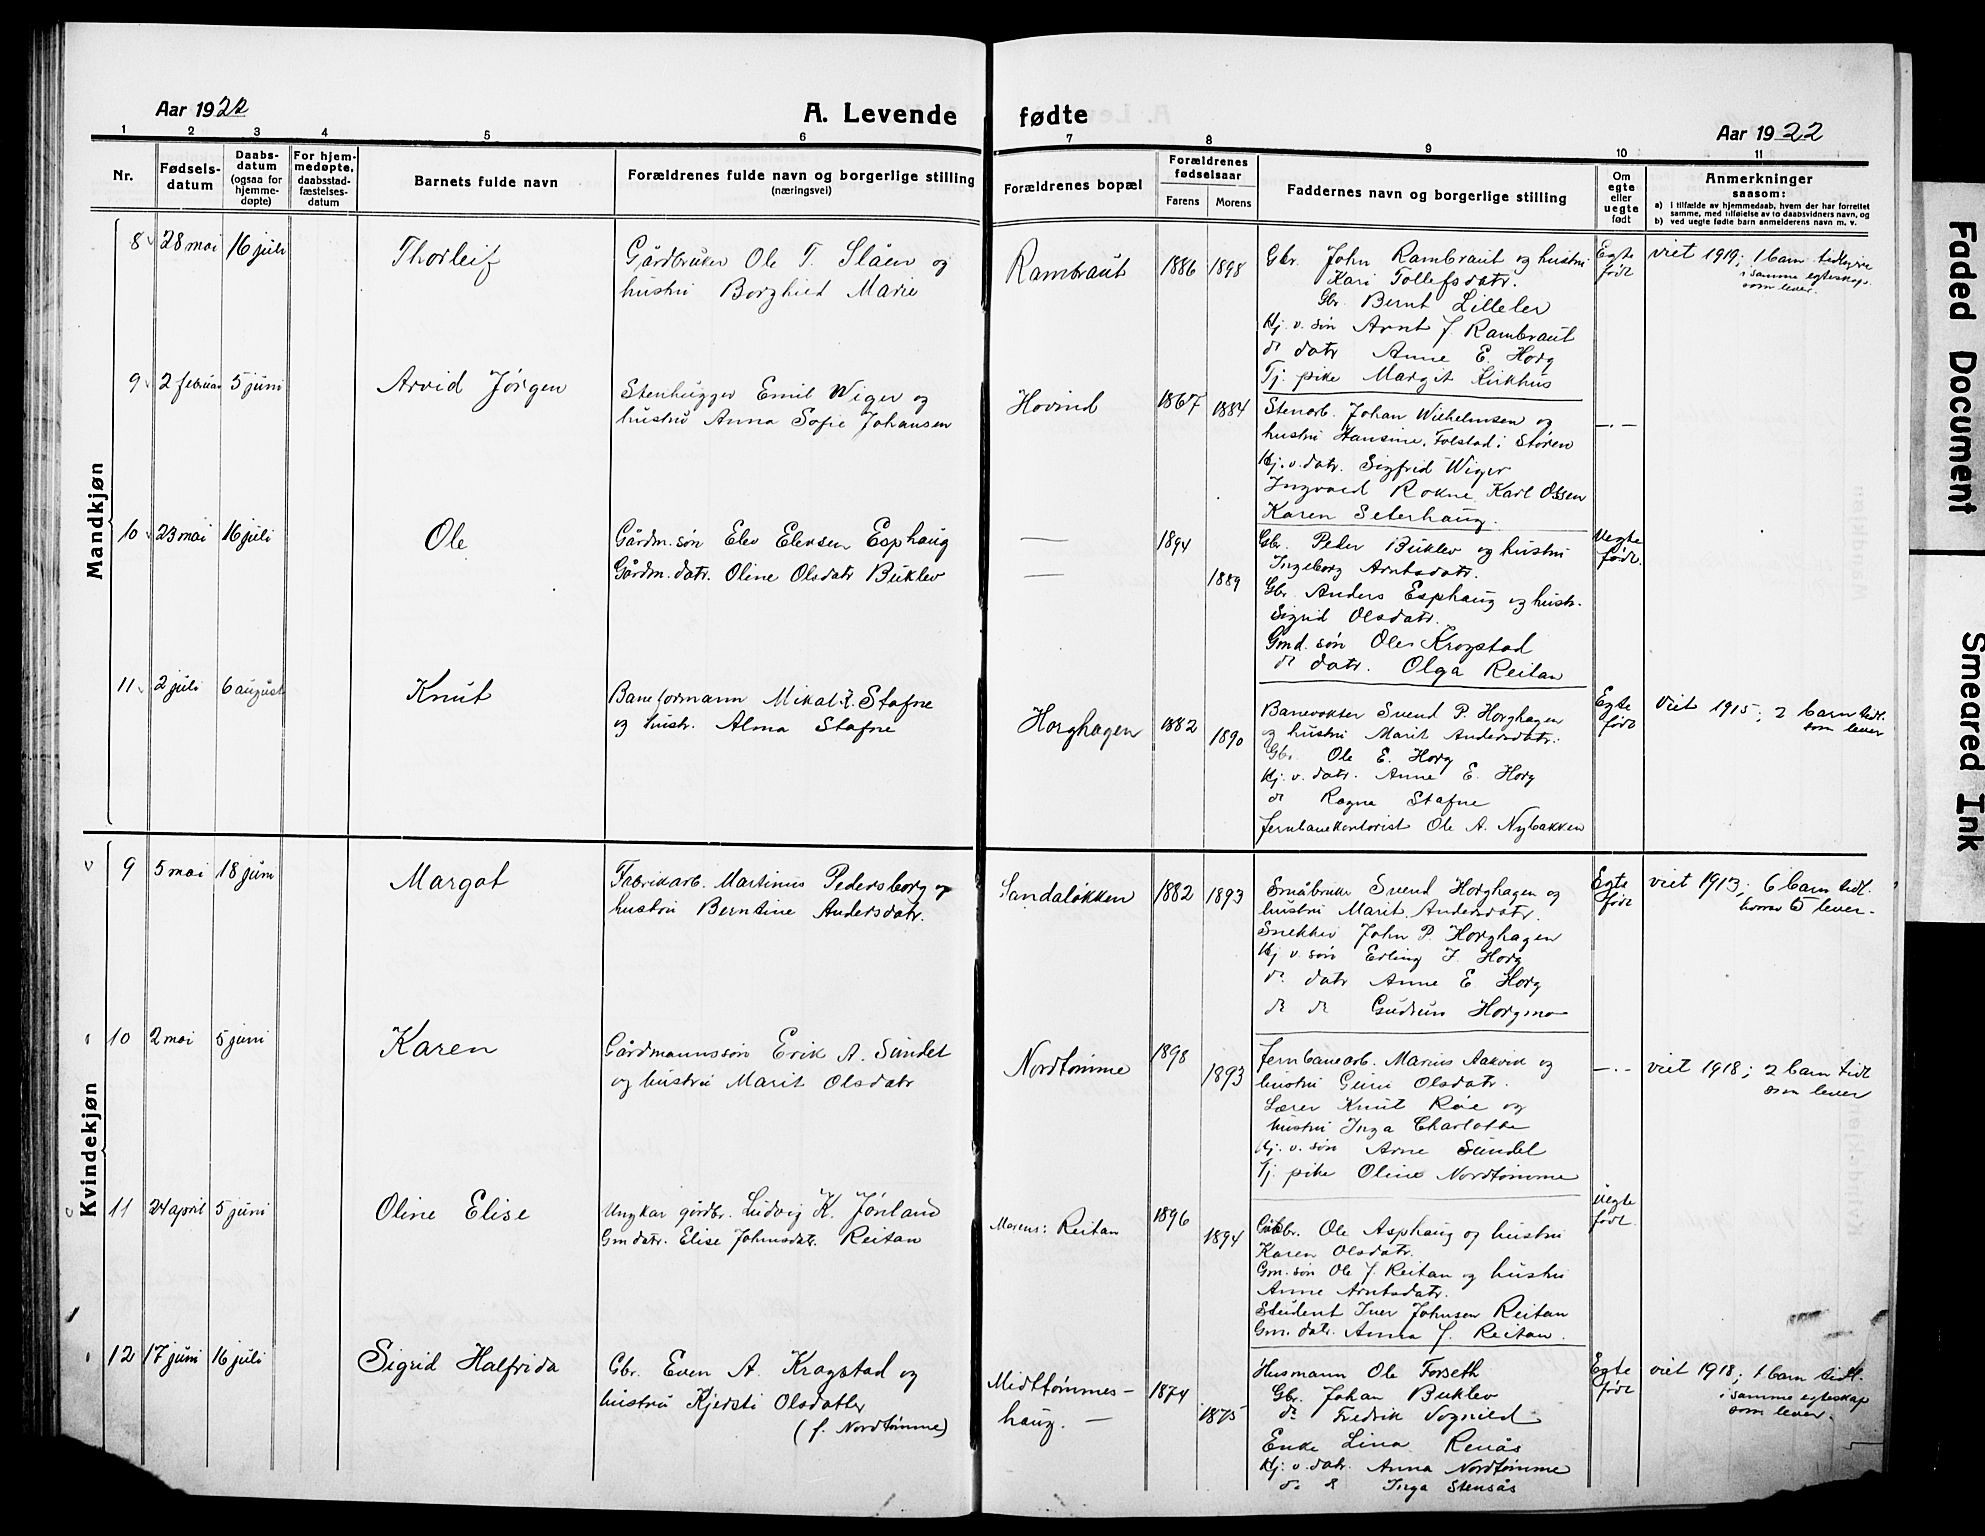 Aar 1922
A. Levende fødte
Aar 1922
1 2 3 4 5 6 7 8 9 10 11
Nr.
Fødsels-
datum
Daabs-
datum
(ogsaa for
hjemme-
døpte)
For hjem-
medøpte,
daabsstad-
fæstelses-
datum
Barnets fulde navn
Forældrenes fulde navn og borgerlige stilling
(næringsvei)
Forældrenes bopæl
Forældrenes
fødselsaar
Farens Morens
Faddernes navn og borgerlige stilling
Om
egte
eller
uegte
født
Anmerkninger
saasom:
a) i tilfælde av hjemmedaab, hvem der har forrettet
samme, med tilføielse av to daabsvidners navn, og
b) ved uegte fødte barn anmelderens navn m. v.
Mandkjøn
8 28 mai 16 juli
Thorleif
Gårdbruker Ole T. Slåen og
hustru Borghild Marie
Rambraut
1886 1898
Gbr. John Rambraut og hustru
Kari Tollefsdatr.
Gbr. Bernt Lilleler
Hj. v. søn Arnt J. Rambraut
do datr Anne E. Horg
Tj. pike Margit Kirkhus
Egte
født
viet 1919; 1 barn tidligere
i samme egteskap
som lever.
9 2 februar 5 juni
Arvid Jørgen
Stenhugger Emil Wiger og
hustru Anna Sofie Johansen
Hovind
1867 1884
Stenarb. Johan Wilhelmsen og
hustru Hansine, Folstad i Støren
Hj. v. datr. Sigfrid Wiger
Ingvald Rokne Karl Ossen
Karen Seterhaug.
— . —
10 23 mai 16 juli
Ole
Gårdm. søn Elev Elevsen Esphaug
Gårdm. datr. Oline Olsdatr Buklev
—
—
1894
1889
Gbr. Peder Buklev og hustru
Ingeborg Arntsdatr.
Gbr. Anders Esphaug og hustr.
Sigrid Olsdatr.
Gmd. søn Ole Krogstad
do datr. Olga Reitan
Uegte
født.
11 2 juli 6 august
Knut
Baneformann Mikal K. Stafne
og hustr. Alma Stafne
Horghagen
1882 1890
Banevokter Svend P. Horghagen
og hustru Marit Andersdatr.
Gbr. Ole E. Horg
Hj. v. datr. Anne E. Horg
do Ragna Stafne
Jernbanekontorist Ole A. Nybakken
Egte
født
Viet 1915; 2 barn tidl.
som lever
Kvindekjøn
9 5 mai 18 juni
Margot
Fabrikarb. Martinus Pedersborg og
hustru Berntine Andersdatr.
Sandaløkken
1882 1893
Småbruker Svend Horghagen og
hustru Marit Andersdatr.
Snekker John P. Horghagen
Hj v. søn Erling J. Horg
do datr Anne E. Horg
do do Gudrun Horgmo
Egte
født
viet 1913; 6 barn tidl.
hvorav 5 lever.
10 2 mai 5 juni
Karen
Gårdmannssøn Erik A. Sundet
og hustru Marit Olsdatr
Nordtømme
1898 1893
Jernbanearb. Marius Aakvik og
hustru Guru Olsdatr.
Lærer Knut Røe og
hustru Inga Charlotte
Hj. v. søn Arne Sundet
Tj. pike Oline Nordtømme
— . —
viet 1918; 2 barn tidl
som lever
11 24 april 5 juni
Oline Elise
Ungkar gårdbr. Ludvig K. Jønland
Gmdatr. Elise Johnsdatr. Reitan
Morens: Reitan
1896 1894
Gbr. Ole Asphaug og hustru
Karen Olsdatr.
Gm. søn Ole J. Reitan og hustru
Anne Arntsdatr.
Student Iver Johnsen Reitan
Gm. datr. Anna J. Reitan.
Uegte
født.
12 17 juni 16 juli
Sigrid Halfrida
Gbr. Even A. Krogstad og
hustru Kjersti Olsdatter
(f. Nordtømme)
Midttømmes-
haug. —
1874 1875
Husmann Ole Forseth
Gbr. Johan Buklev
do Fredrik Vognild
Enke Lina Renås
Hj. v. datr. Anna Nordtømme
do do Inga Stensås
Egte
født
viet 1918; 1 barn tidl.
i samme egteskap
som lever.
Faded Document
Smeared Ink